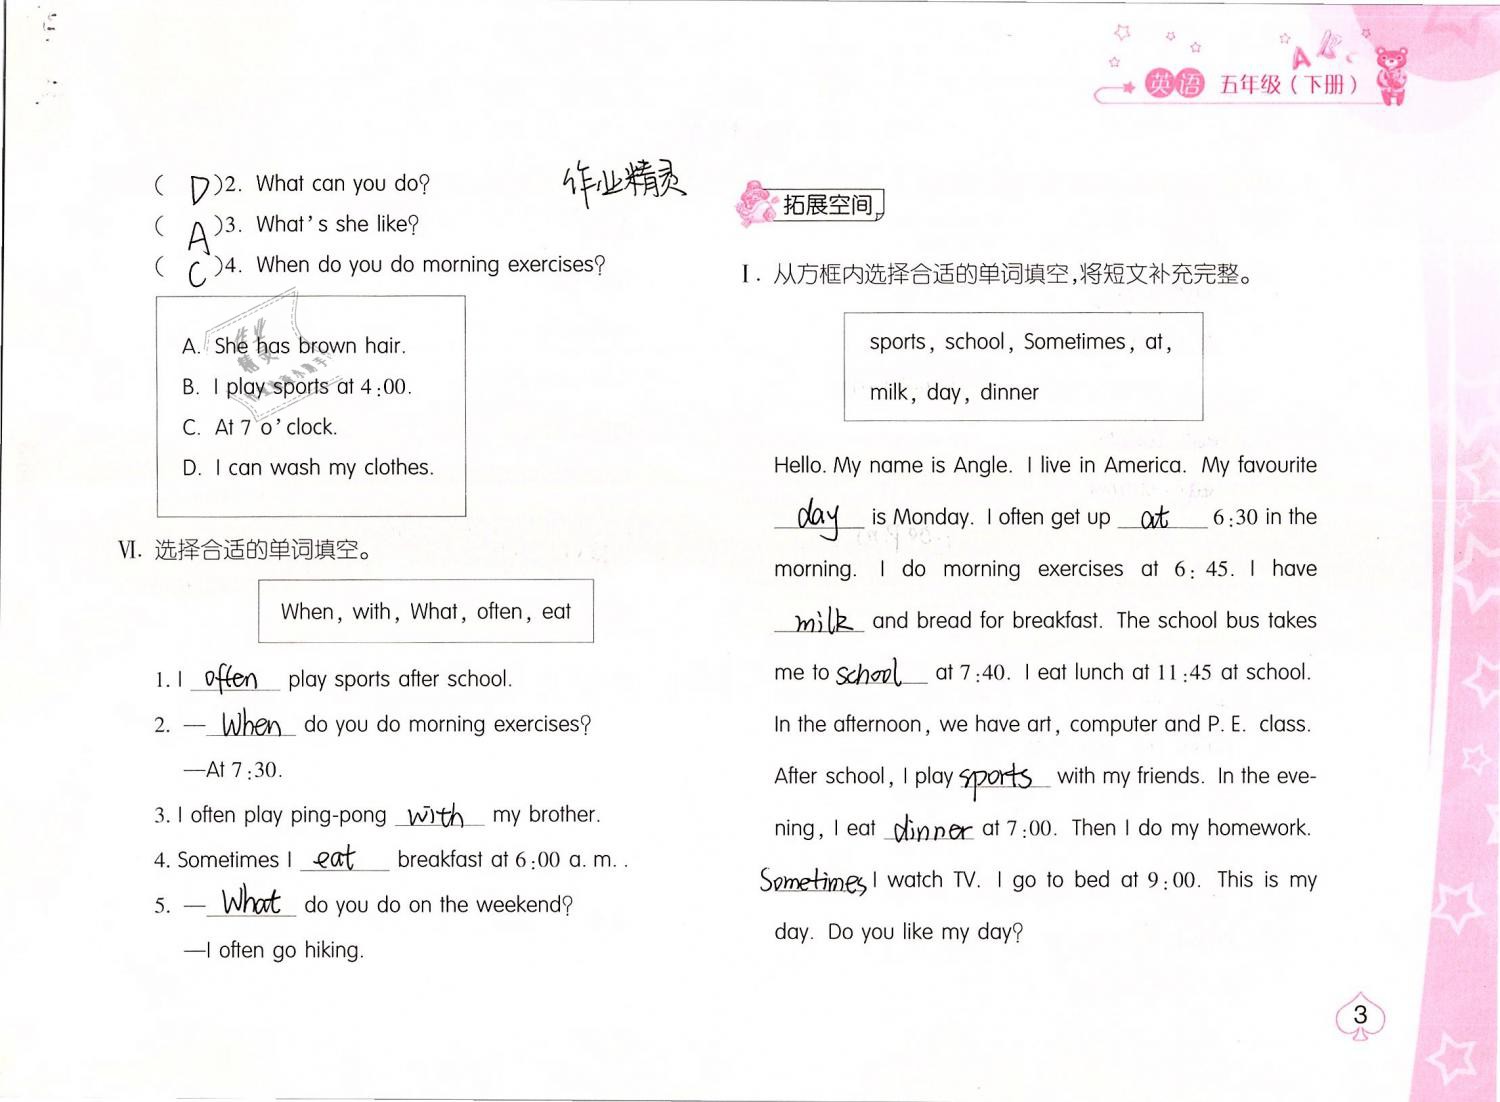 英语 五年级(下册)
作业精灵
( D )2. What can you do?
( A )3. What's she like?
( C )4. When do you do morning exercises?
A. She has brown hair.
B. I play sports at 4:00.
C. At 7 o'clock.
D. I can wash my clothes.
Ⅵ. 选择合适的单词填空。
When, with, What, often, eat
1. I often play sports after school.
2. —When do you do morning exercises?
—At 7:30.
3. I often play ping-pong with my brother.
4. Sometimes I eat breakfast at 6:00 a. m. .
5. —What do you do on the weekend?
—I often go hiking.
拓展空间
Ⅰ. 从方框内选择合适的单词填空,将短文补充完整。
sports, school, Sometimes, at,
milk, day, dinner
Hello. My name is Angle. I live in America. My favourite
day is Monday. I often get up at 6:30 in the
morning. I do morning exercises at 6:45. I have
milk and bread for breakfast. The school bus takes
me to school at 7:40. I eat lunch at 11:45 at school.
In the afternoon, we have art, computer and P. E. class.
After school, I play sports with my friends. In the eve-
ning, I eat dinner at 7:00. Then I do my homework.
Sometimes I watch TV. I go to bed at 9:00. This is my
day. Do you like my day?
3